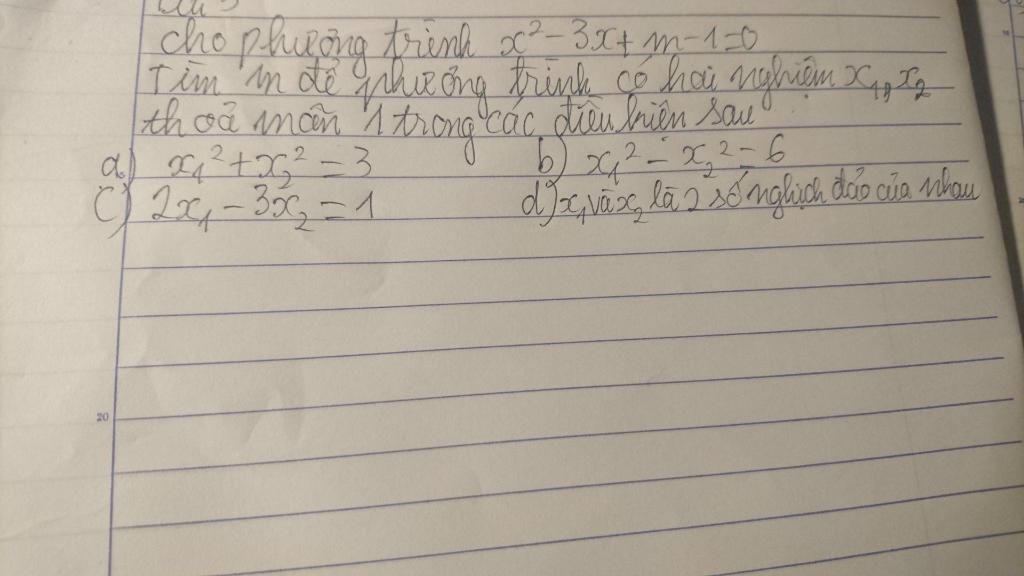 cho phương trình x² - 3x + m - 1 = 0
Tìm m để phương trình có hai nghiệm x₁, x₂
thoả mãn 1 trong các điều kiện sau
a) x₁² + x₂² = 3 b) x₁² - x₂² = 6
c) 2x₁ - 3x₂ = 1 d) x₁ và x₂ là 2 số nghịch đảo của nhau
20